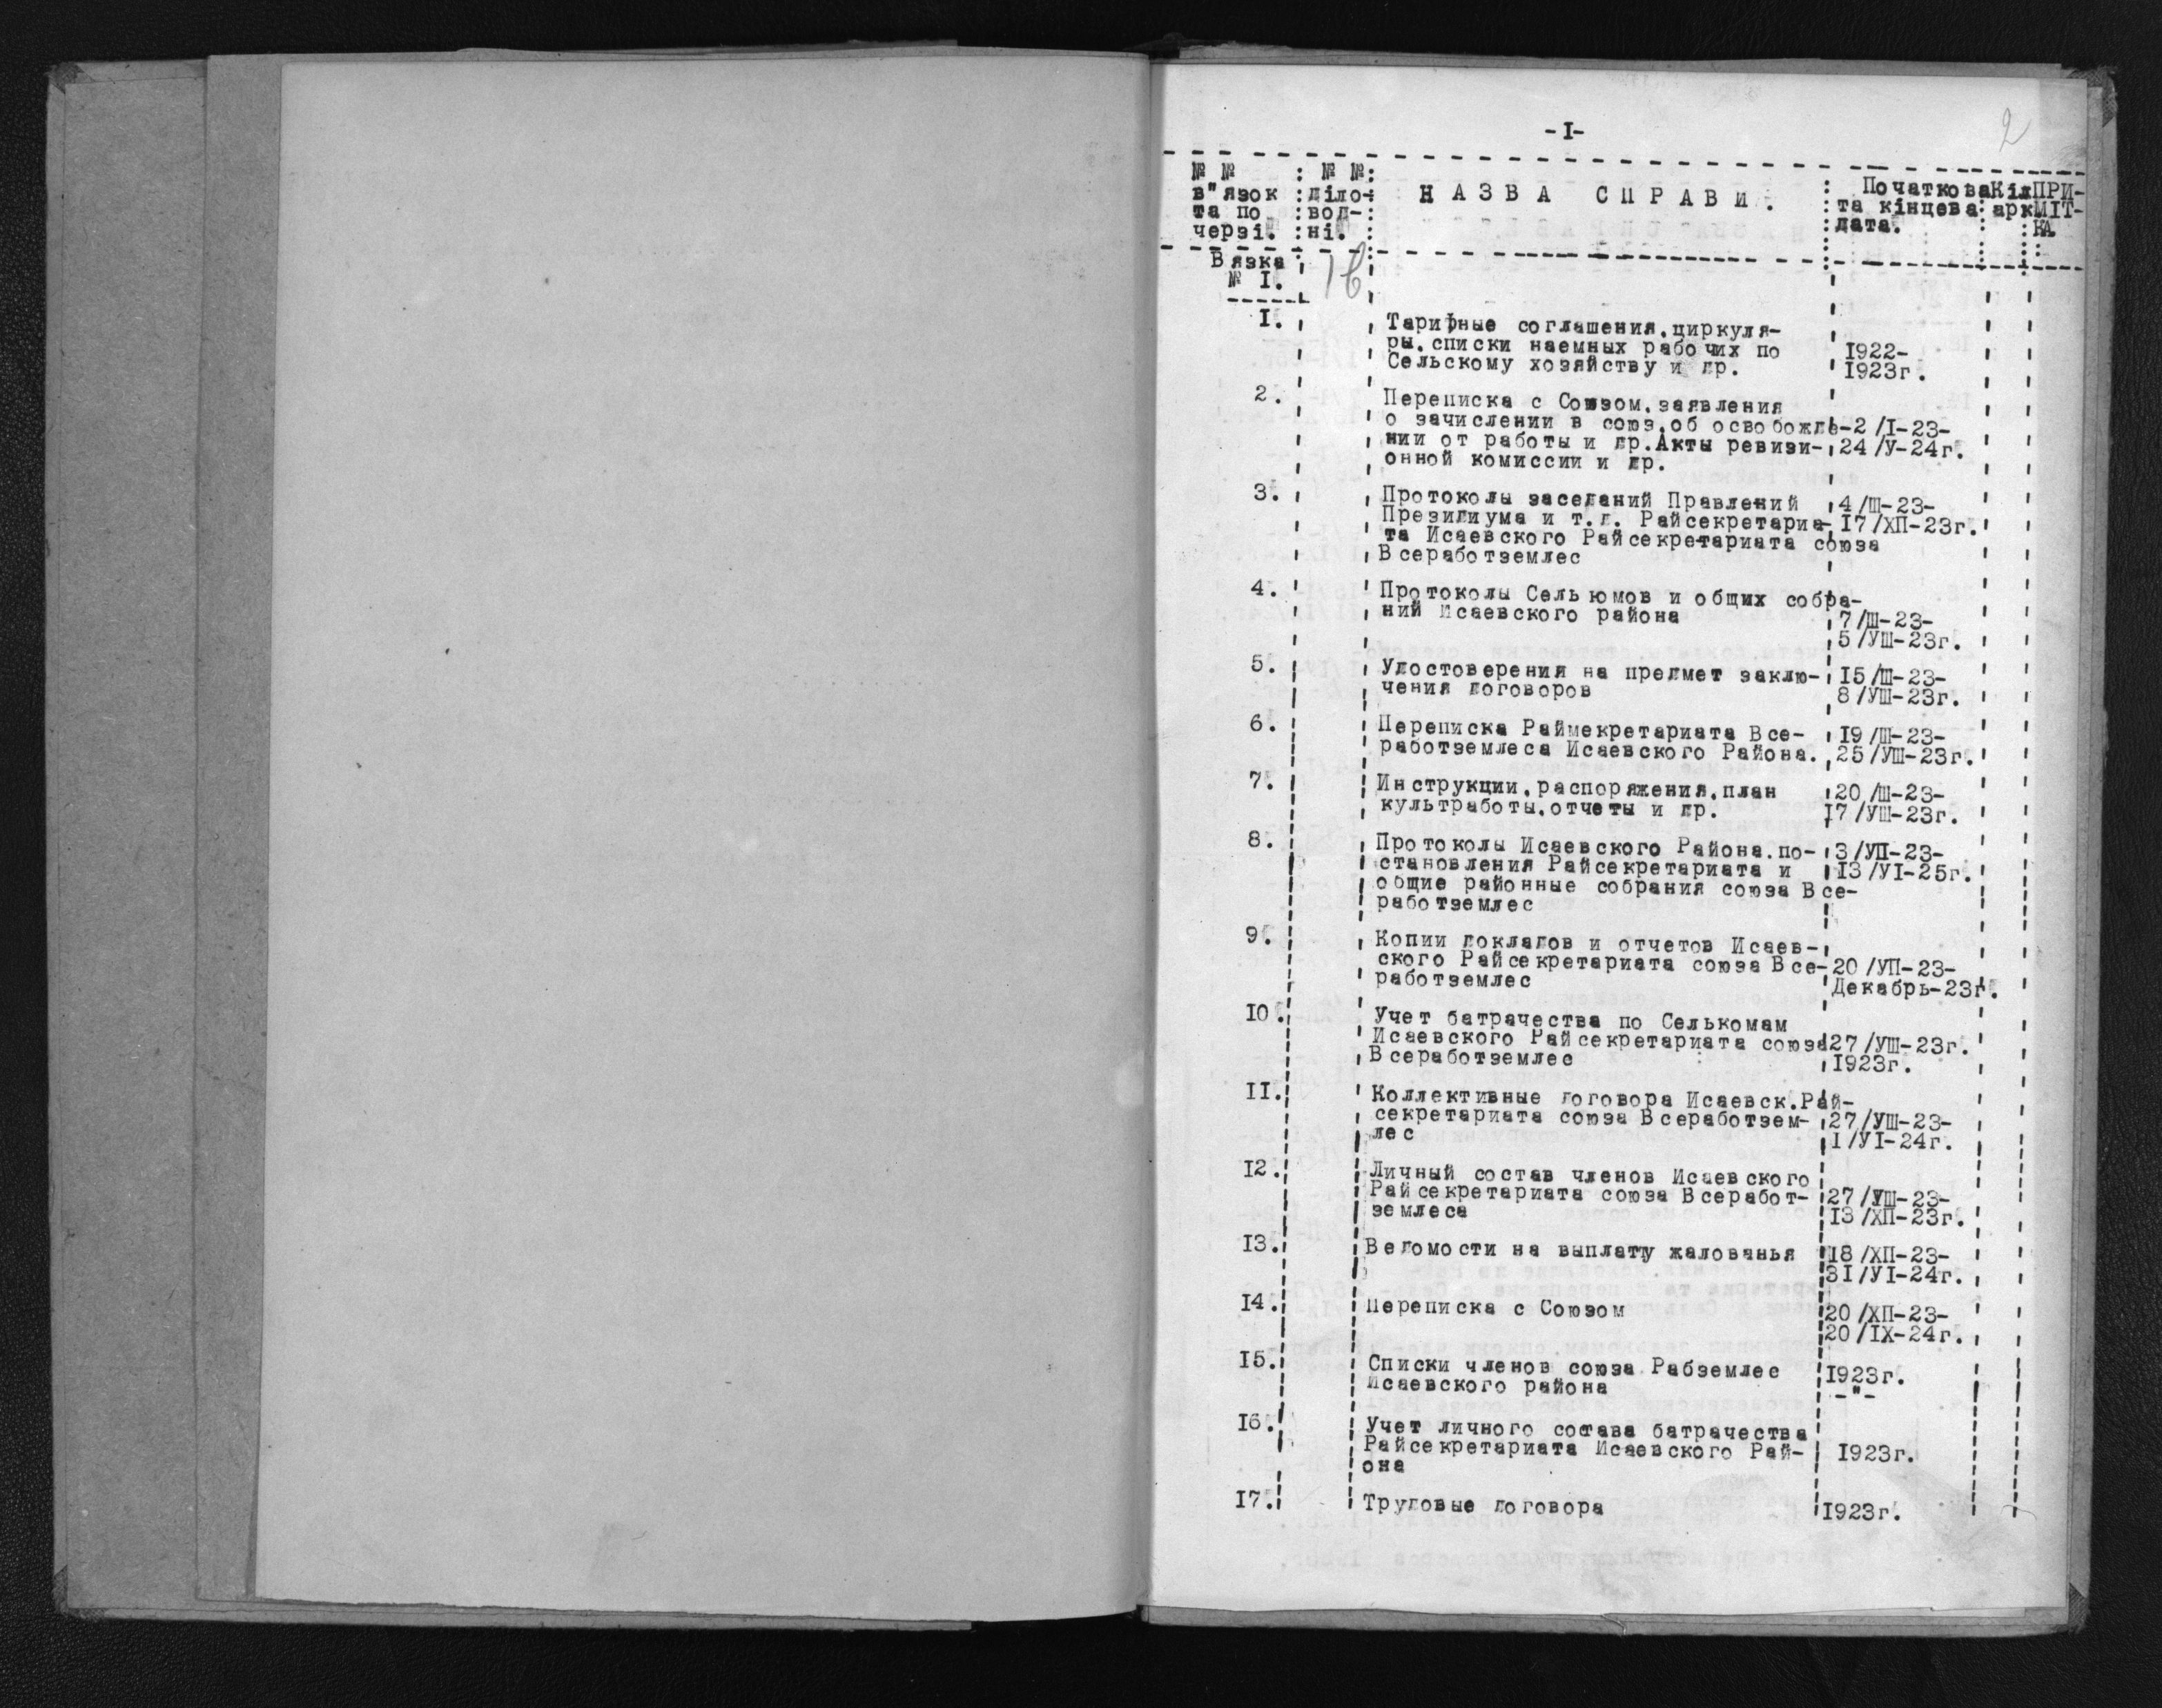 -I-
2
№ № в"язок та по черзі. : № № діло-вод-ні. : НАЗВА СПРАВИ. : Початкова та кінцева дата. : Кіл арк : ПРИ-МІТ-КА.
Вязка
№ I.
I. Тарифные соглашения,циркуля-
ры,списки наемных рабочих по I922-
Сельскому хозяйству и др. I923г.
2. Переписка с Союзом,заявления
о зачислении в союз,об освобожде- 2/I-23-
нии от работы и др.Акты ревизи- 24/У-24г.
онной комиссии и др.
3. Протоколы заседаний Правлений 4/Ш-23-
Президиума и т.д. Райсекретариа- I7/ХП-23г.
та Исаевского Райсекретариата союза
Всеработземлес
4. Протоколы Сельюмов и общих собра-
ний Исаевского района 7/Ш-23-
5/УШ-23г.
5. Удостоверения на предмет заклю- I5/Ш-23-
чения договоров 8/УШ-23г.
6. Переписка Раймекретариата Все- I9/Ш-23-
работземлеса Исаевского Района. 25/УШ-23г.
7. Инструкции,распоряжения,план 20/Ш-23-
культработы,отчеты и др. I7/УШ-23г.
8. Протоколы Исаевского Района.по- 3/УП-23-
становления Райсекретариата и I3/УI-25г.
общие районные собрания союза Все-
работземлес
9. Копии докладов и отчетов Исаев-
ского Райсекретариата союза Все- 20/УП-23-
работземлес Декабрь-23г.
I0. Учет батрачества по Селькомам
Исаевского Райсекретариата союза 27/УШ-23г.
Всеработземлес I923г.
II. Коллективные договора Исаевск.Рай-
секретариата союза Всеработзем- 27/УШ-23-
лес I/УI-24г.
I2. Личный состав членов Исаевского
Райсекретариата союза Всеработ- 27/УШ-23-
землеса I3/ХП-23г.
I3. Ведомости на выплату жалованья I8/ХП-23-
3I/УI-24г.
I4. Переписка с Союзом 20/ХП-23-
20/IX-24г.
I5. Списки членов союза Рабземлес I923г.
Исаевского района -"-
I6. Учет личного состава батрачества
Райсекретариата Исаевского Рай- I923г.
она
I7. Трудовые договора I923г.